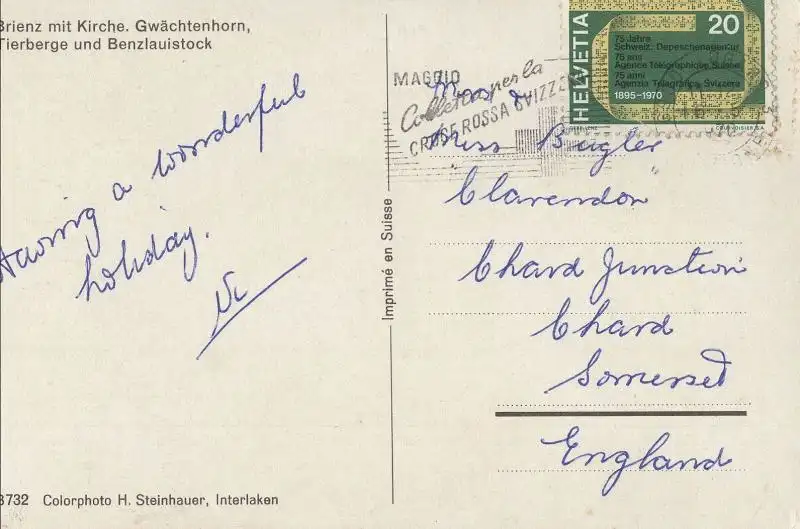 Brienz mit Kirche. Gwächtenhorn,
Tierberge und Benzlauistock
Having a wonderful
holiday.
3732 Colorphoto H. Steinhauer, Interlaken
Imprimé en Suisse
MAGGIO
Colletta per la
CROCE ROSSA SVIZZ
HELVETIA
20
75 Jahre
Schweiz. Depeschenagentur
75 ans
Agence Télégraphique Suisse
75 anni
Agenzia Telegrafica Svizzera
1895-1970
COURVOISIER S.A.
Mrs &
Miss Bugler
"Clarendon"
Chard Junction
Chard
Somerset
England